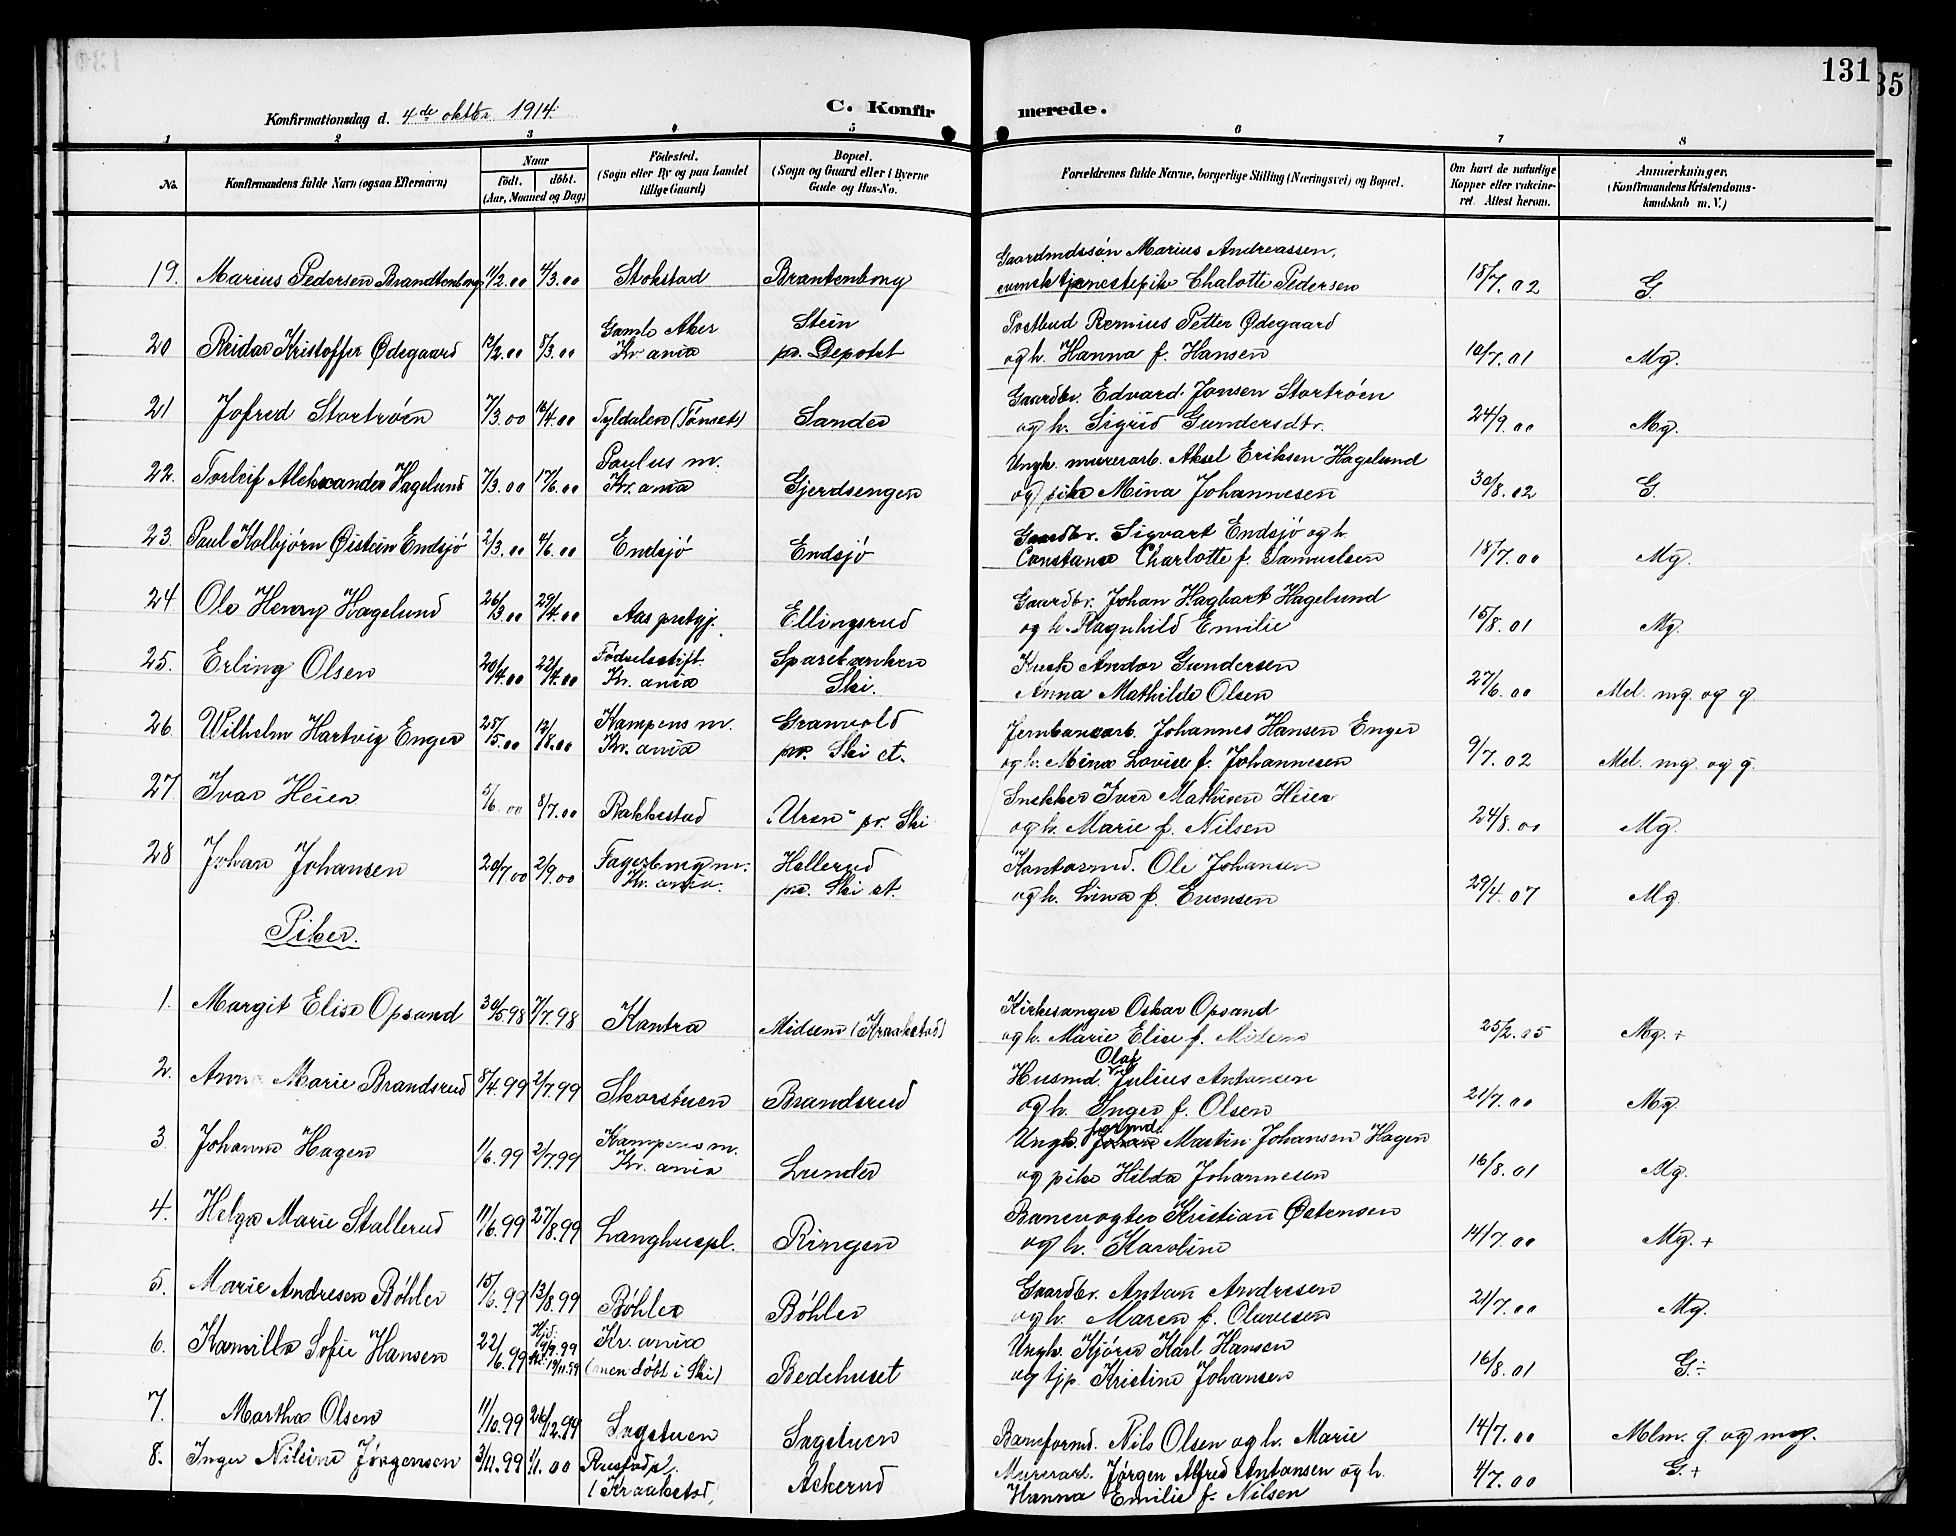 131
35
Konfirmationsdag d. 4de oktbr. 1914.
C. Konfirmerede.
1 2 3 4 5 6 7 8
No.
Konfirmandens fulde Navn (ogsaa Efternavn)
Naar
født. døbt.
(Aar, Maaned og Dag)
Födested.
(Sogn eller By og paa Landet
tillige Gaard)
Bopæl.
(Sogn og Gaard eller i Byerne
Gade og Hus-No.
Forældrenes fulde Navne, borgerlige Stilling (Næringsvei) og Bopæl.
Om havt de naturlige
Kopper eller vakcine-
ret. Attest herom.
Anmærkninger.
(Konfirmandens Kristendoms-
kundskab m. V.)
19. Marius Pedersen Brandtenborg 11/2.00 4/3.00 Stokstad Brantenborg Gaardmdssön Marius Andreassen,
svensk tjenestepike Chalotte Pedersen 18/7.02 G.
20 Reidar Kristoffer Ødegaard 12/2.00 8/3.00 Gamle Aker
Kr.ania Stein
pr. Depotet Postbud Remius Petter Ødegaard
og h. Hanna f. Hansen 10/7.01 Mg.
21 Jofred Stortröen 7/3.00 16/4.00 Tyldalen (Tönset) Sander Gaardbr. Edvard Jonsen Stortröen
og h. Sigrid Gundersdtr. 24/9.00 Mg.
22. Torleif Aleksander Hagelund 7/3.00 17/6.00 Paulus m.
Kr.ania Gjerdsengen Ungk. murerarb. Aksel Eriksen Hagelund
og pike Mina Johannesen 30/8.02 G.
23. Paul Kolbjörn Öistein Endsjö 2/3.00 4/6.00 Endsjö Endsjö Gaardbr. Sigvart Endsjö og h.
Constanse Charlotte f. Samuelsen 18/7.00 Mg.
24 Ole Henry Hagelund 26/3.00 29/4.00 Aas prstgj. Ellingsrud Gaardbr. Johan Hagbart Hagelund
og h. Ragnhild Emilie 15/8.01 Mg.
25. Erling Olsen 20/4.00 22/4.00 Födselsstift.
Kr.ania Sparebanken
Ski. Kusk Andor Gundersen
Anna Mathilde Olsen 27/6.00 Mel. mg. og g.
26 Wilhelm Hartvig Enger 25/5.00 12/8.00 Kampens m.
Kr.ania Granvold
pr. Ski st. Jernbanearb. Johannes Hansen Enger
og h. Mina Lovise f. Johannesen 9/7.02 Mel. mg. og g.
27. Ivar Heier 5/6.00 8/7.00 Rakkestad „Uren“ pr. Ski Snekker Iver Mathisen Heier
og h. Marie f. Nilsen 24/8.01 Mg.
28 Johan Johansen 20/7.00 2/9.00 Fagerborg m.
Kr.ania. Hellerud
pr. Ski st. Kontormd. Ole Johansen
og h. Lina f. Evensen 29/4.07 Mg.
Piker.
1. Margit Elise Opsand 30/5.98 7/7.98 Kantra Midsem (Kraakstad) Kirkesanger Oskar Opsand
og h. Marie Elise f. 25/2.05 Mg. +
2. Anne Marie Brandsrud 8/4.99 2/7.99 Skorstuen Brandsrud Olaf
Husmd. Julius Antonsen
og h. Inger f. Olsen 21/7.00 Mg.
3 Johanne Hagen 1/6.99 2/7.99 Kampens m.
Kr.ania Lunder formd.
Ungk. Johan Martin Johansen Hagen
og pike Hilda Johannesen 16/8.01 Mg.
4. Helga Marie Stallerud 11/6.99 27/8.99 Langhuspl. Ringen Banevogter Kristian Östensen
og h. Karoline 14/7.00 Mg. +
5. Marie Andresen Böhler 15/6.99 13/8.99 Böhler Böhler Gaardbr. Anton Andresen
og h. Maren f. Olavesen 21/7.00 Mg.
6. Kamilla Sofie Hansen 22/6.99 Hjd.
19/11.99 Kr.ania
(men döbt i Ski) Bedehuset Ungk. Kjörer Karl Hansen
og tjp. Kristine Johansen 16/8.01 G.÷
7. Martha Olsen 11/10.99 26/12.99 Sagstuen Sagstuen Baneformd. Nils Olsen og h. Marie 14/7.00 Mlm. g. og mg.
8. Inger Nilsine Jørgensen 3/11.99 1/1.00 Rustadpl.
(Kraakstad) Askerud Murerarb. Jørgen Alfred Antonsen og h.
Hanna Emilie f. Nilsen 4/7.00 G.+